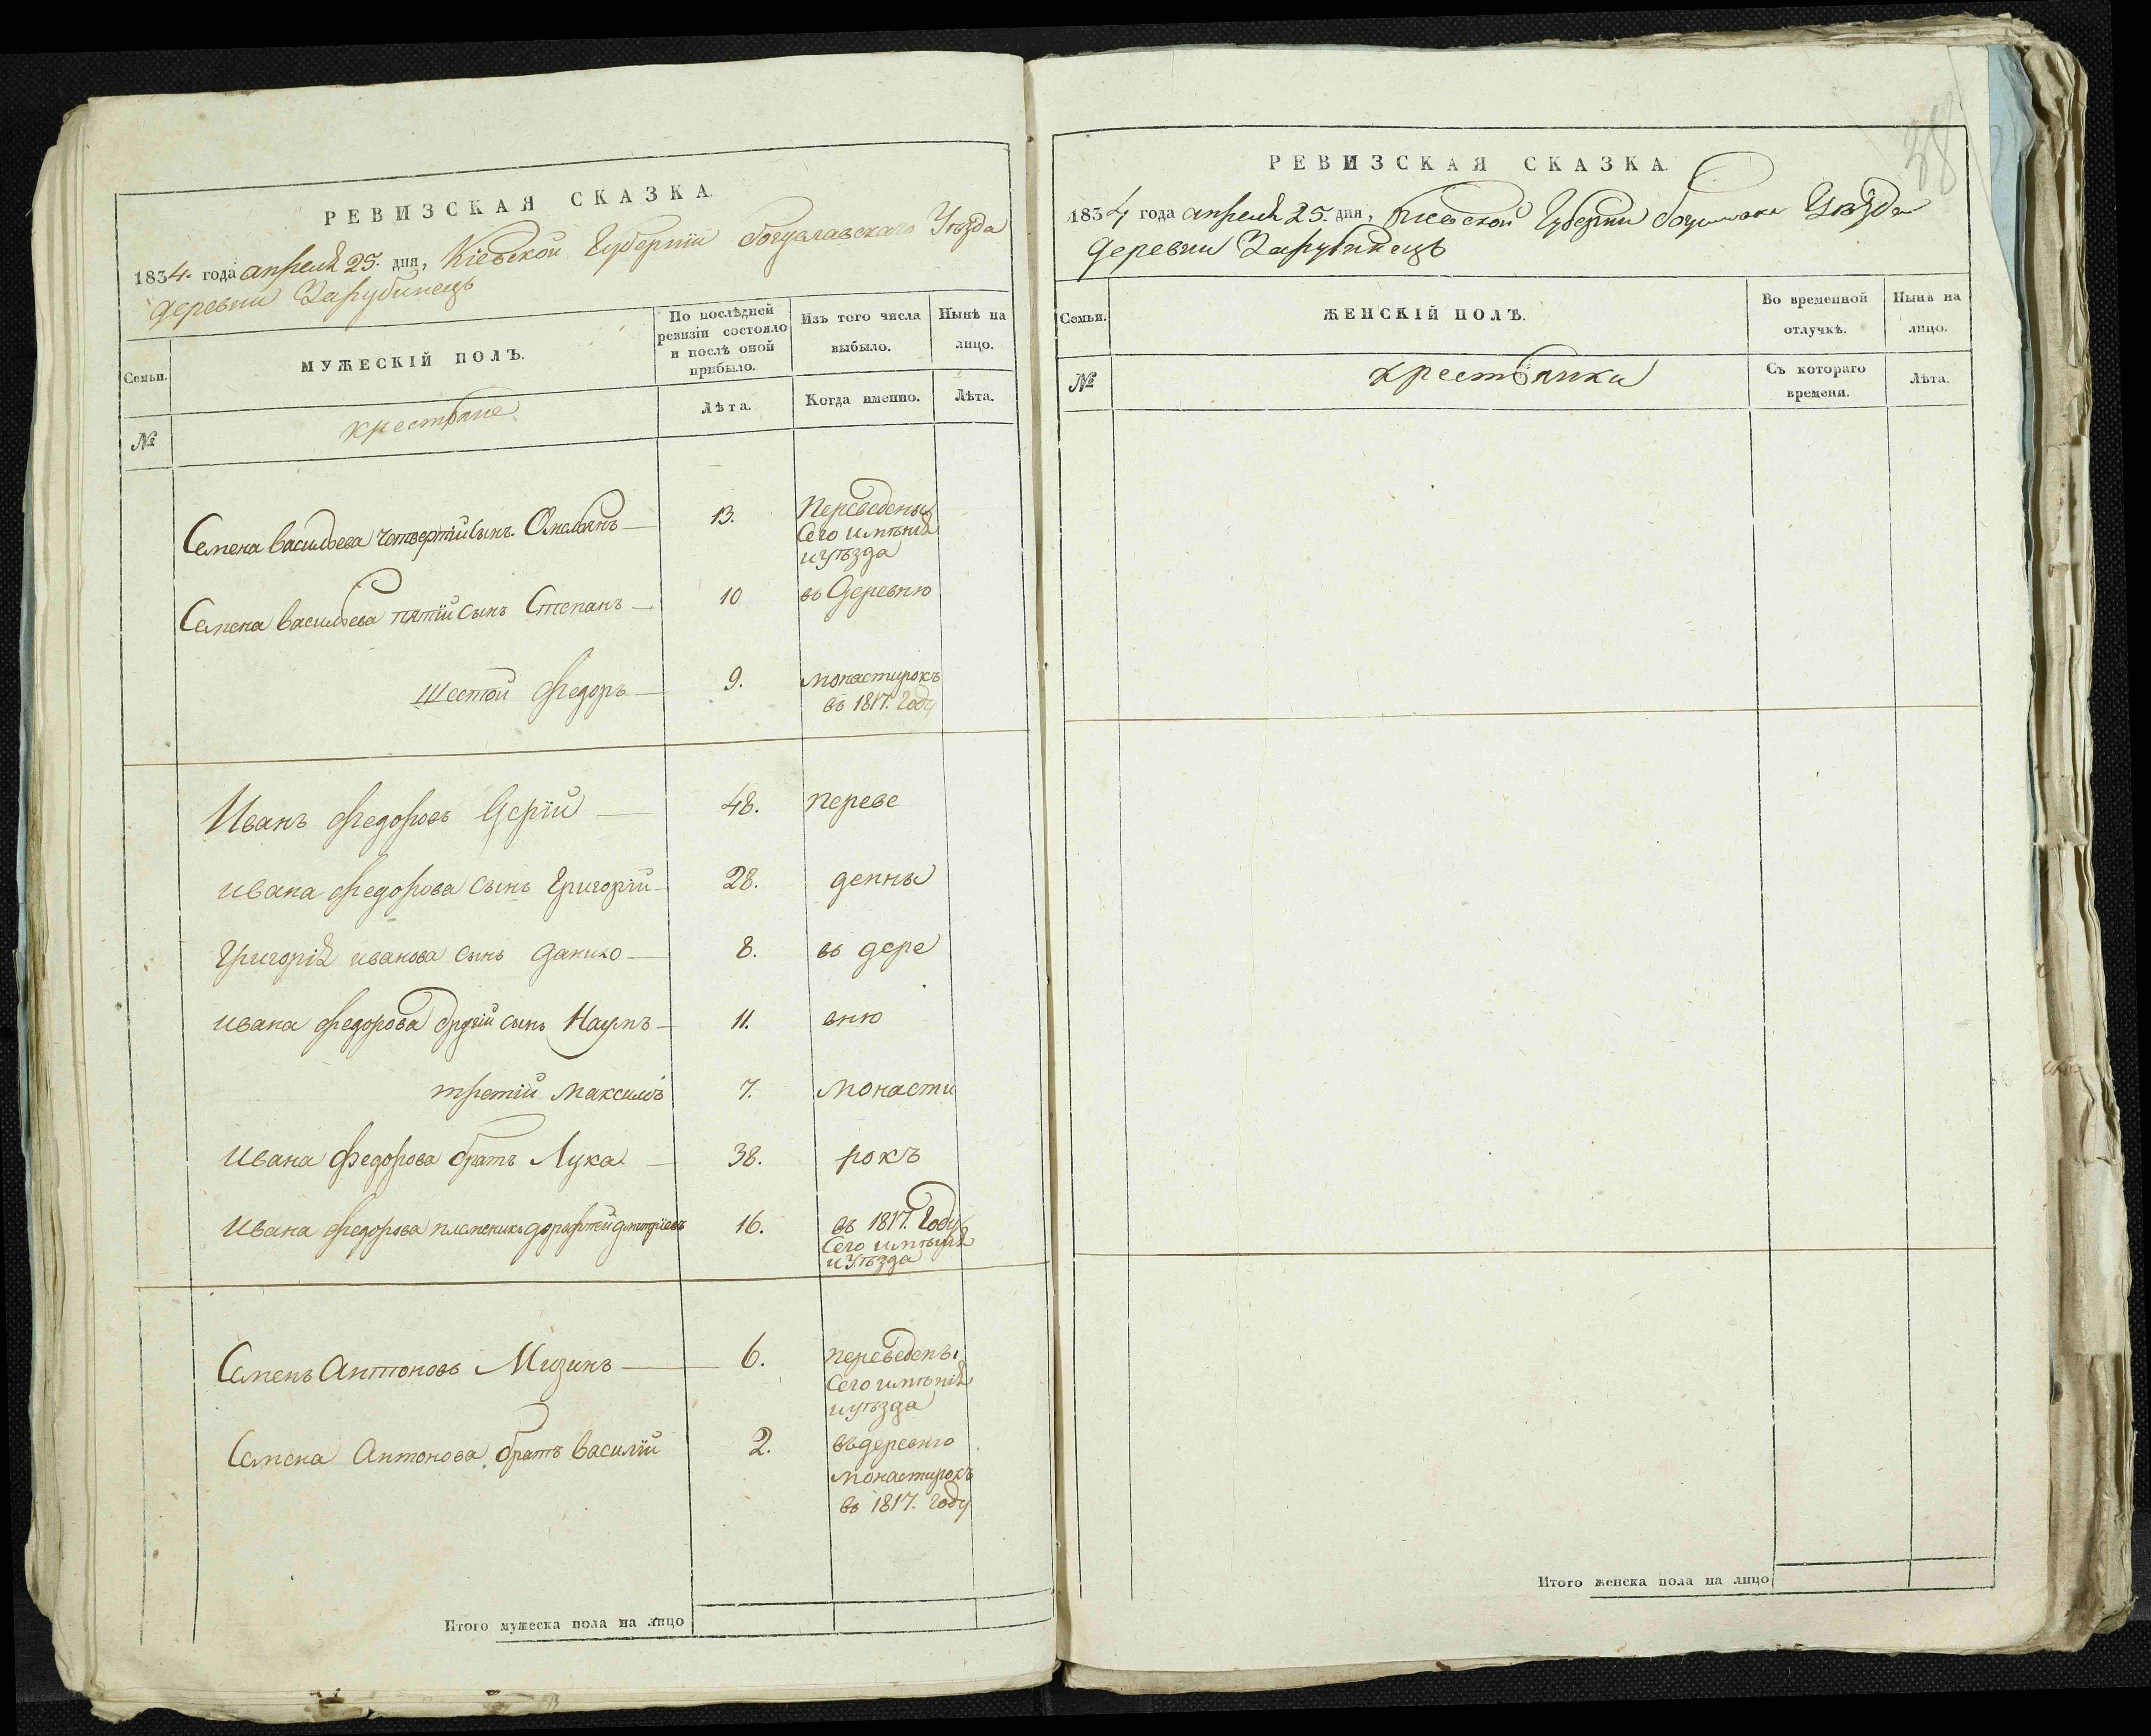 РЕВИЗСКАЯ СКАЗКА.
1834. года апреля 25. дня, Кіевской Губерніи Богуславскаго Уѣзда
деревни Зарубинецъ
Семьи.
МУЖЕСКІЙ ПОЛЪ.
По послѣдней
ревизіи состояло
и послѣ оной
прибыло.
Изъ того числа
выбыло.
Нынѣ на
лицо.
№
крестьяне
Лѣта.
Когда именно.
Лѣта.
Семена васильева четвертій сынъ Омельянъ — 13. Переведены
Сего имѣнія
и уѣзда
Семена васильева пятій сынъ Степанъ — 10 въ Деревню
шестой Федоръ — 9. монастирокъ
въ 1817. Году
Иванъ Федоровъ Серій — 48. переве
ивана Федорова сынъ Григорій — 28. денны
Григорія иванова сынъ Данило — 8. въ дере
ивана Федорова другій сынъ Наумъ — 11. вню
третій Максимъ 7. монасти
ивана Федорова братъ Лука — 38. рокъ
ивана Федорова племеникъ дорофтей дмитріевъ 16. въ 1817. Году
Сего имѣнія
и Уѣзда
Семенъ Антоновъ Мизинъ — 6. переведены
Сего имѣнія
и уѣзда
Семена Антонова братъ василій 2. въ деревню
монастирокъ
въ 1817. Году
Итого мужеска пола на лицо
38
РЕВИЗСКАЯ СКАЗКА.
1834 года апреля 25. дня, Кіевской Губерніи Уѣзда
деревни Зарубинецъ
Семьи.
ЖЕНСКІЙ ПОЛЪ.
Во временной
отлучкѣ.
Нынѣ на
лицо.
№
крестьянки
Съ котораго
времени.
Лѣта.
Итого женска пола на лицо